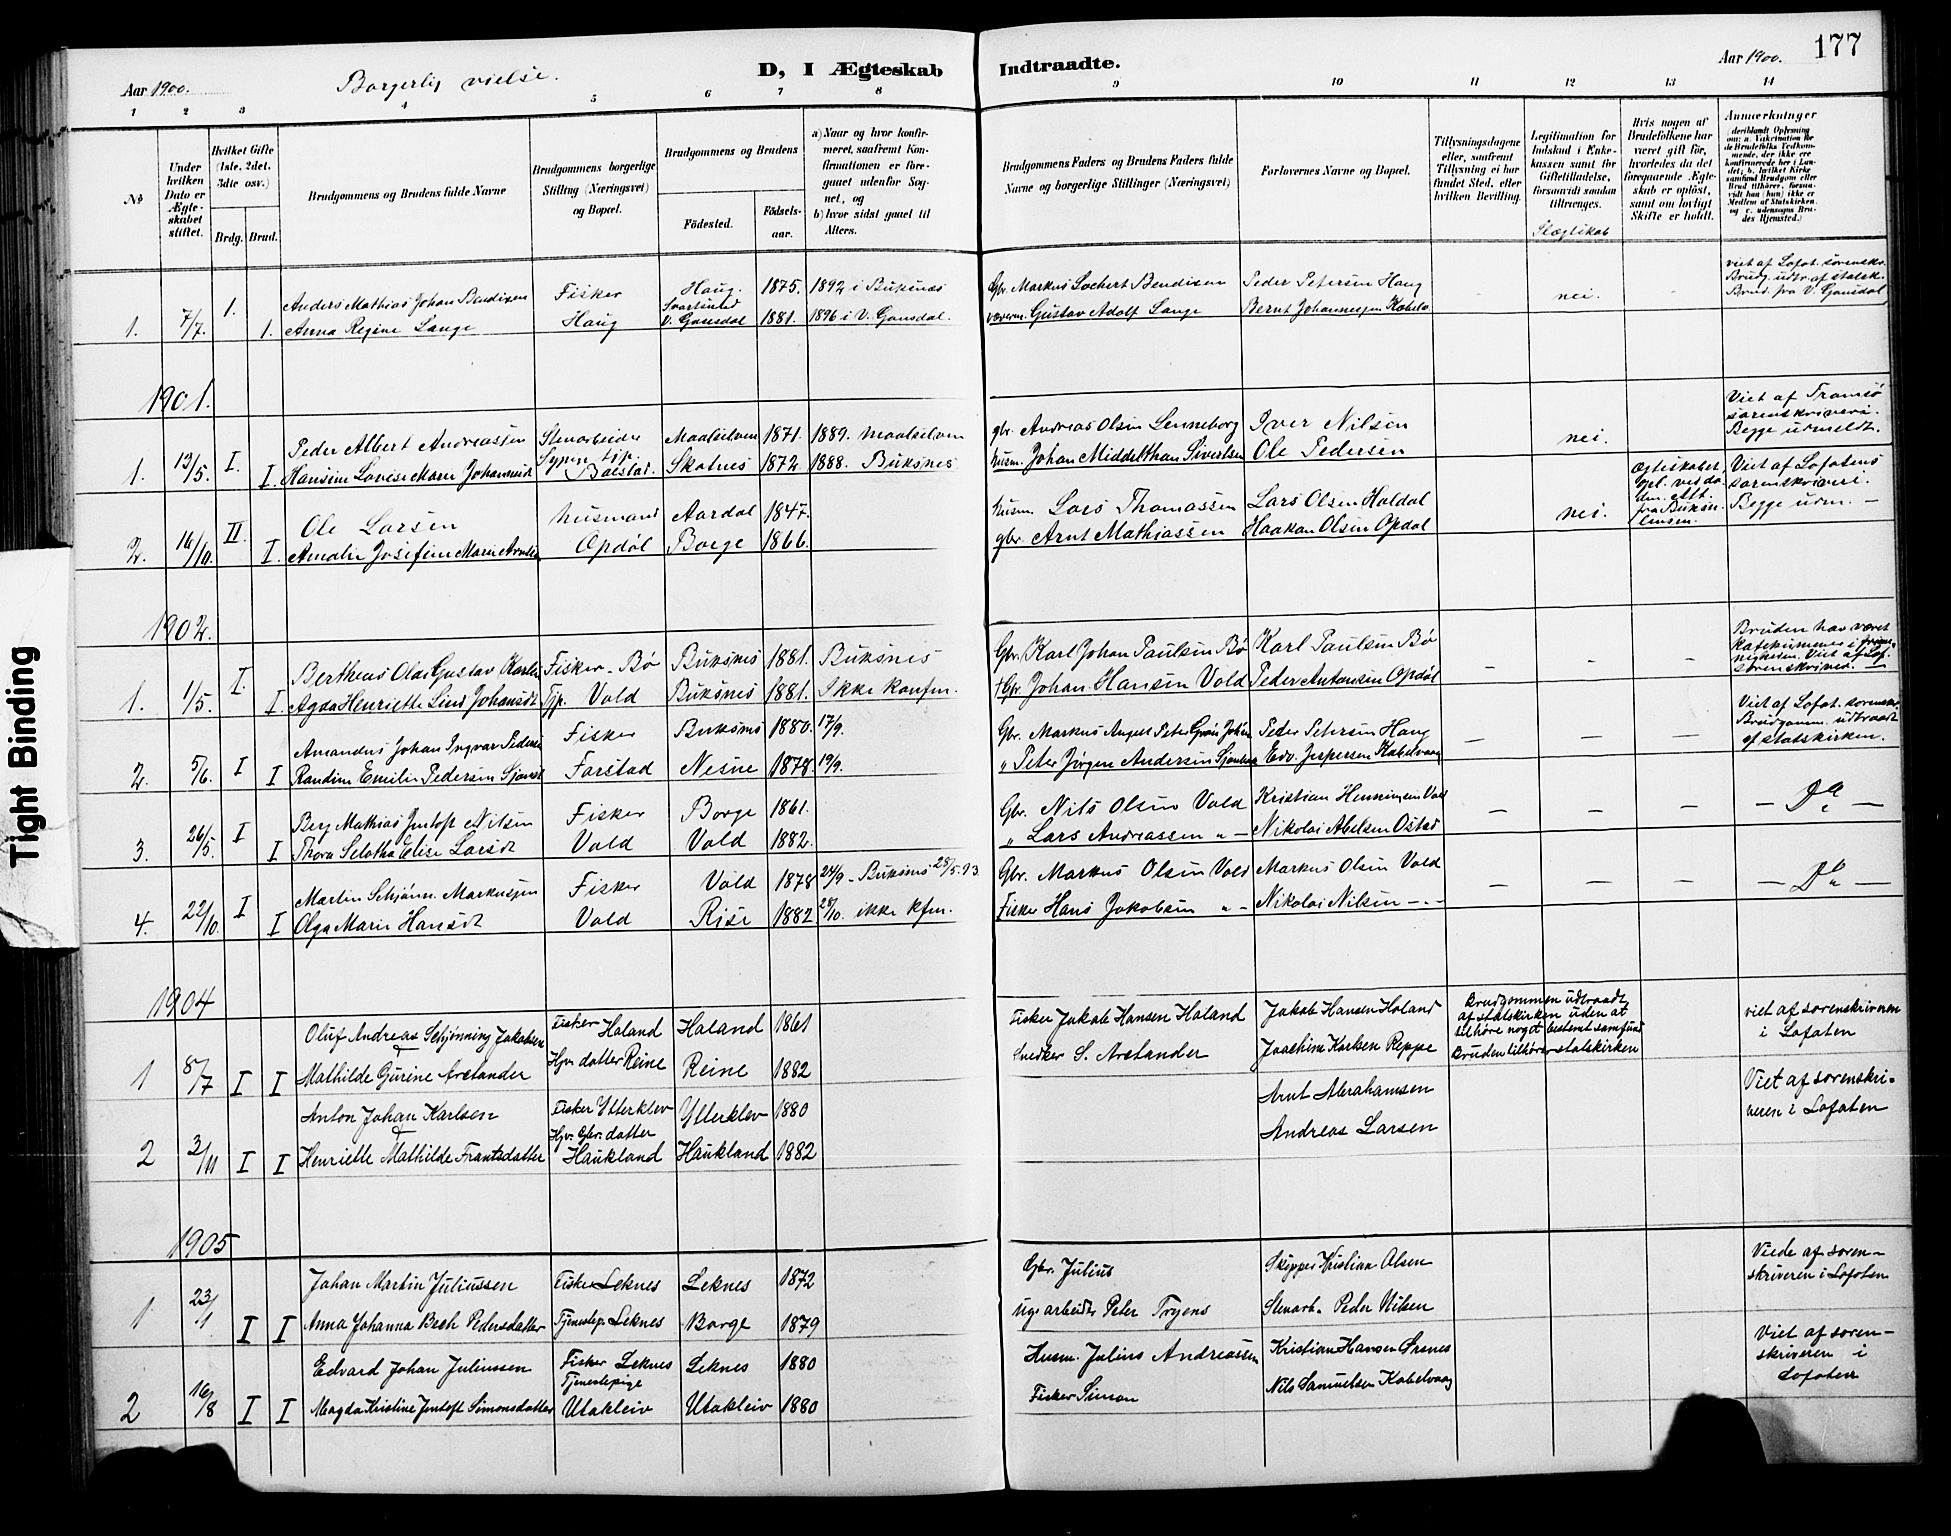 177
Aar 1900.
Borgerlig vielse.
D, I Ægteskab Indtraadte.
Aar 1900.
1 2 3 4 5 6 7 8 9 10 11 12 13 14
No
Under hvilken Dato er Ægteskabet stiftet.
Hvilket Gifte (1ste, 2det, 3die osv.)
Brdg. Brud.
Brudgommens og Brudens fulde Navne
Brudgommens borgerlige Stilling (Næringsvei) og Bopæl.
Brudgommens og Brudens
Fødested.
Fødselsaar.
a) Naar og hvor konfirmeret, saafremt Konfirmationen er foregaaet udenfor Sognet, og
b) hvor sidst gaaet til Alters.
Brudgommens Faders og Brudens Faders fulde Navne og borgerlige Stillinger (Næringsvei)
Forlovernes Navne og Bopæl.
Tillysningsdagene eller, saafremt Tillysning ei har fundet Sted, efter hvilken Bevilling.
Legitimation for Indskud i Enkekassen samt for Giftetilladelse, forsaavidt saadan tiltrænges.
Slægtskab
Hvis nogen af Brudefolkene har været gift før, hvorledes da det foregaaende Ægteskab er opløst, samt om lovligt Skifte er holdt.
Anmærkninger
1. 7/7. 1. Anders Mathias Johan Bendixen Fisker Haug. 1875. 1892 i Buksnæs Gbr. Markus Lochert Bendixen Peder Petersen Haug - nei. viet af Lofot. sorenskr. Brudg. udtr. af statsk.
1. Anna Regine Lange Haug Svartsund V. Gausdal 1881. 1896 i V. Gausdal. Gustav Adolf Lange Bernt Johannessen Brud. fra V. Gausdal
1901.
1. 13/5. I. Peder Albert Andreassen Stenarbeider Maalselven 1871. 1889. Maalselven gbr. Andreas Olsen Lenneborg Iver Nilsen nei. Viet af Tromsø sorenskriveri. Begge udmeldt.
I. Hansine Lovise Marie Johannesd Balstad. Skotnes 1872. 1888. Buksnes husm. Johan Middelthon Sivertsen Ole Pedersen
2. 16/11. II. Ole Larsen husmand Aardal 1847. husm. Lars Thomassen Lars Olsen Holdal nei. Ægteskabet opl. ved døden. Att. fra Buksn. Viet af Lofotens sorenskriveri. Begge udm. -
I. Amalie Josefine Marie Arntsen Opdøl Borge 1866. gbr. Arnt Mathiassen Haakon Olsen Opdal
1902.
1. 1/5. I. Bertheus Olai Gustav Karlsen Fisker - Bø Buksnes 1881. Buksnes Gbr. Karl Johan Paulsen Bø Karl Paulsen Bø - - - Bruden har været
I. Agda Henriette Lind Johansdt Tjp. Vold Buksnes 1881. Ikke konfm. †Gbr. Johan Hansen Vold Peder Antonsen Opdøl Viet af Lof. sorenskriveri. -
2. 5/6. I Amandus Johan Ingvar Pedersen Fisker Buksnes 1880. 17/9. Gbr. Markus August Peter Peder Petersen Haug - - - Viet af Lofot. sorenskr. Brudgomm. udtraadt af statskirken.
I Randine Emilie Pedersen Farstad Nesne 1878. 19/9. " Peter Jørgen Andersen Edv. Jespersen Kabelvaag
3. 26/5. I Berg Mathias Jentoft Nilsen Fisker Borge 1861. Gbr. Nils Olsen Vold Kristian Henningsen Vold - - - - Do -
I Thora Selotha Elise Larsdt Vold Vold 1882. " Lars Andreassen " - Nikolai Abelsen Ostad
4. 22/10. I Martin Schjønn. Markussen Fisker Vold 1878 24/9 - Buksnes 25/5.93. Gbr. Markus Olsen Vold Markus Olsen Vold - - - - Do -
I Olga Marie Hansdt Vold Risø 1882 28/10. ikke kfm. Fisker Hans Jakobsen " - Nikolai Nilsen - " -
1904
Oluf Andreas Schjønning Jakobsen Fisker Holand Holand 1861 Fisker Jakob Hansen Holand Jakob Hansen Holand Brudgommen udtraadt af statskirken uden at tilhøre noget bestemt samfund viet af sorenskriveren i Lofoten
1 8/7 I I Mathilde Gurine Arstander Hjv. datter Reine Reine 1882 Snedker S. Arstander Joachim Karlsen Reppe Bruden tilhører statskirken
Anton Johan Karlsen Fisker Ytterklev Ytterklev 1880 Arnt Abrahamsen Viet af sorenskriveren i Lofoten
2 3/11 I I Henriette Mathilde Frantsdatter Hjv. Gbr. datter Haukland Haukland 1882 Andreas Larsen
1905
Johan Martin Juliussen Fisker Leknes Leknes 1872 Gbr. Julius Skipper Kristian Olsen Viede af sorenskriveren i Lofoten
1 23/1 I I Anna Johanna Bech Pedersdatter Tjenestep. Leknes Borge 1879 arbeider Peter Tryens Stenarb. Peder Nilsen
Edvard Johan Juliussen Fisker Leknes Leknes 1880 Husm. Julius Andreassen Kristian Hansen Ørsnes Viet af sorenskriveren i Lofoten
2 16/8 I I Magda Kristine Jentoft Simonsdatter Tjenestepige Utakleiv Utakleiv 1880 Fisker Simon Nils Samuelsen Kabelvaag
Tight Binding